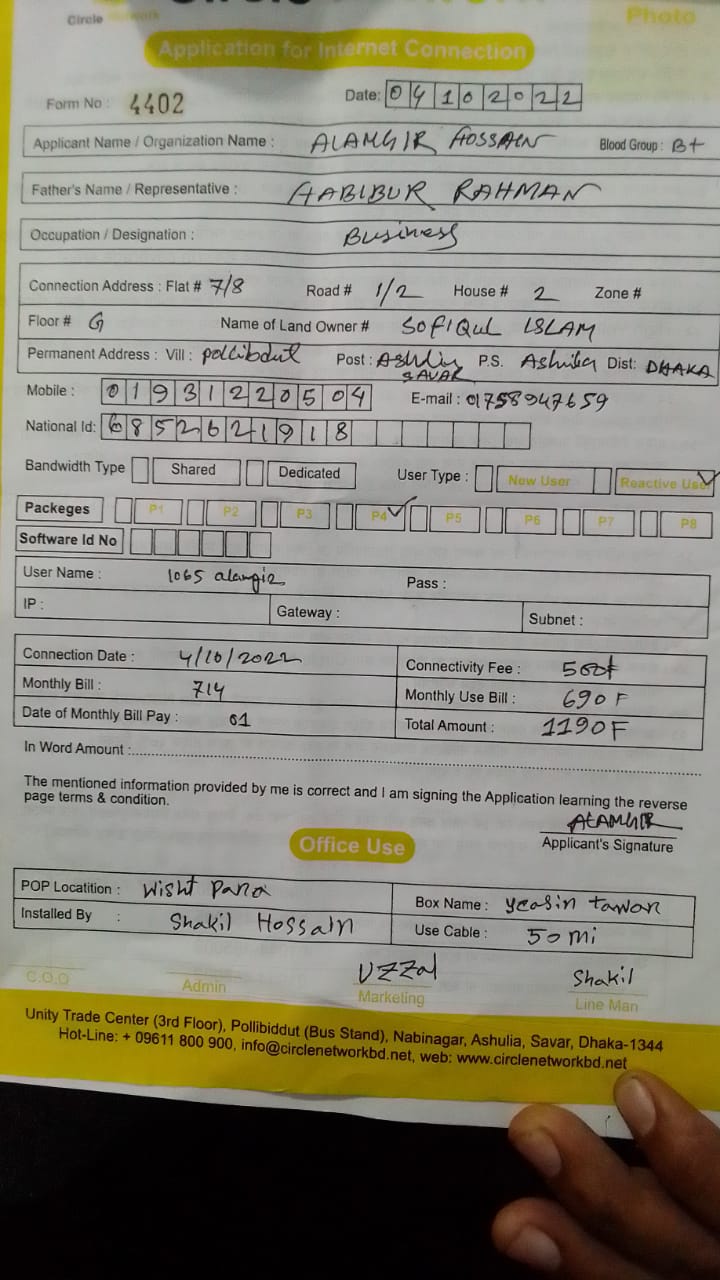 Circle Network
Photo
Application for Internet Connection
Form No : 4402 Date: 04102022
Applicant Name / Organization Name : ALAMGIR HOSSAIN Blood Group : B+
Father's Name / Representative : HABIBUR RAHMAN
Occupation / Designation : Business
Connection Address : Flat # 7/8 Road # 1/2 House # 2 Zone #
Floor # G Name of Land Owner # SOFIQUL ISLAM
Permanent Address : Vill : pollibdut Post : SAVAR P.S. Dist: DHAKA
Mobile : 01931220504 E-mail : 01758947659
National Id: 6852621918
Bandwidth Type Shared Dedicated User Type : New User Reactive User
Packeges P1 P2 P3 P4 P5 P6 P7 P8
Software Id No
User Name : 1065 alamgir Pass :
IP : Gateway : Subnet :
Connection Date : 4/10/2022 Connectivity Fee : 500
Monthly Bill : 714 Monthly Use Bill : 690
Date of Monthly Bill Pay : 01 Total Amount : 1190
In Word Amount :
The mentioned information provided by me is correct and I am signing the Application learning the reverse
page terms & condition.
ALAMGIR
Applicant's Signature
Office Use
POP Locatition : Wisht Para Box Name : yeasin tawar
Installed By : Shakil Hossain Use Cable : 50 mi
UZZal Shakil
C.O.O Admin Marketing Line Man
Unity Trade Center (3rd Floor), Pollibiddut (Bus Stand), Nabinagar, Ashulia, Savar, Dhaka-1344
Hot-Line: + 09611 800 900, info@circlenetworkbd.net, web: www.circlenetworkbd.net